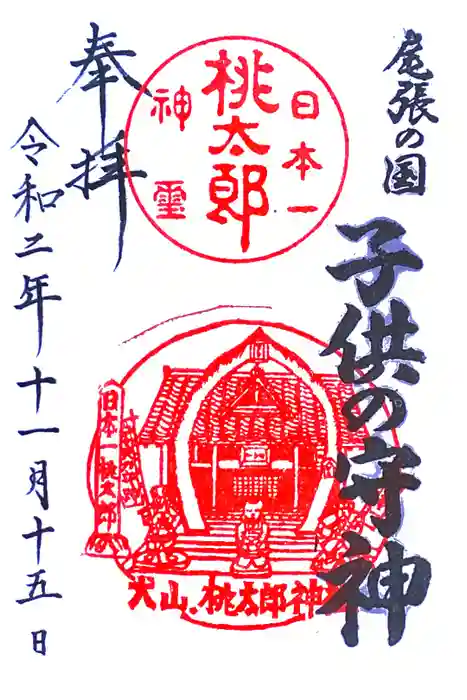 尾張の国
子供の守神
日本一
桃太郎
神霊
日本一桃太郎
犬山、桃太郎神
奉拝
令和二年十一月十五日